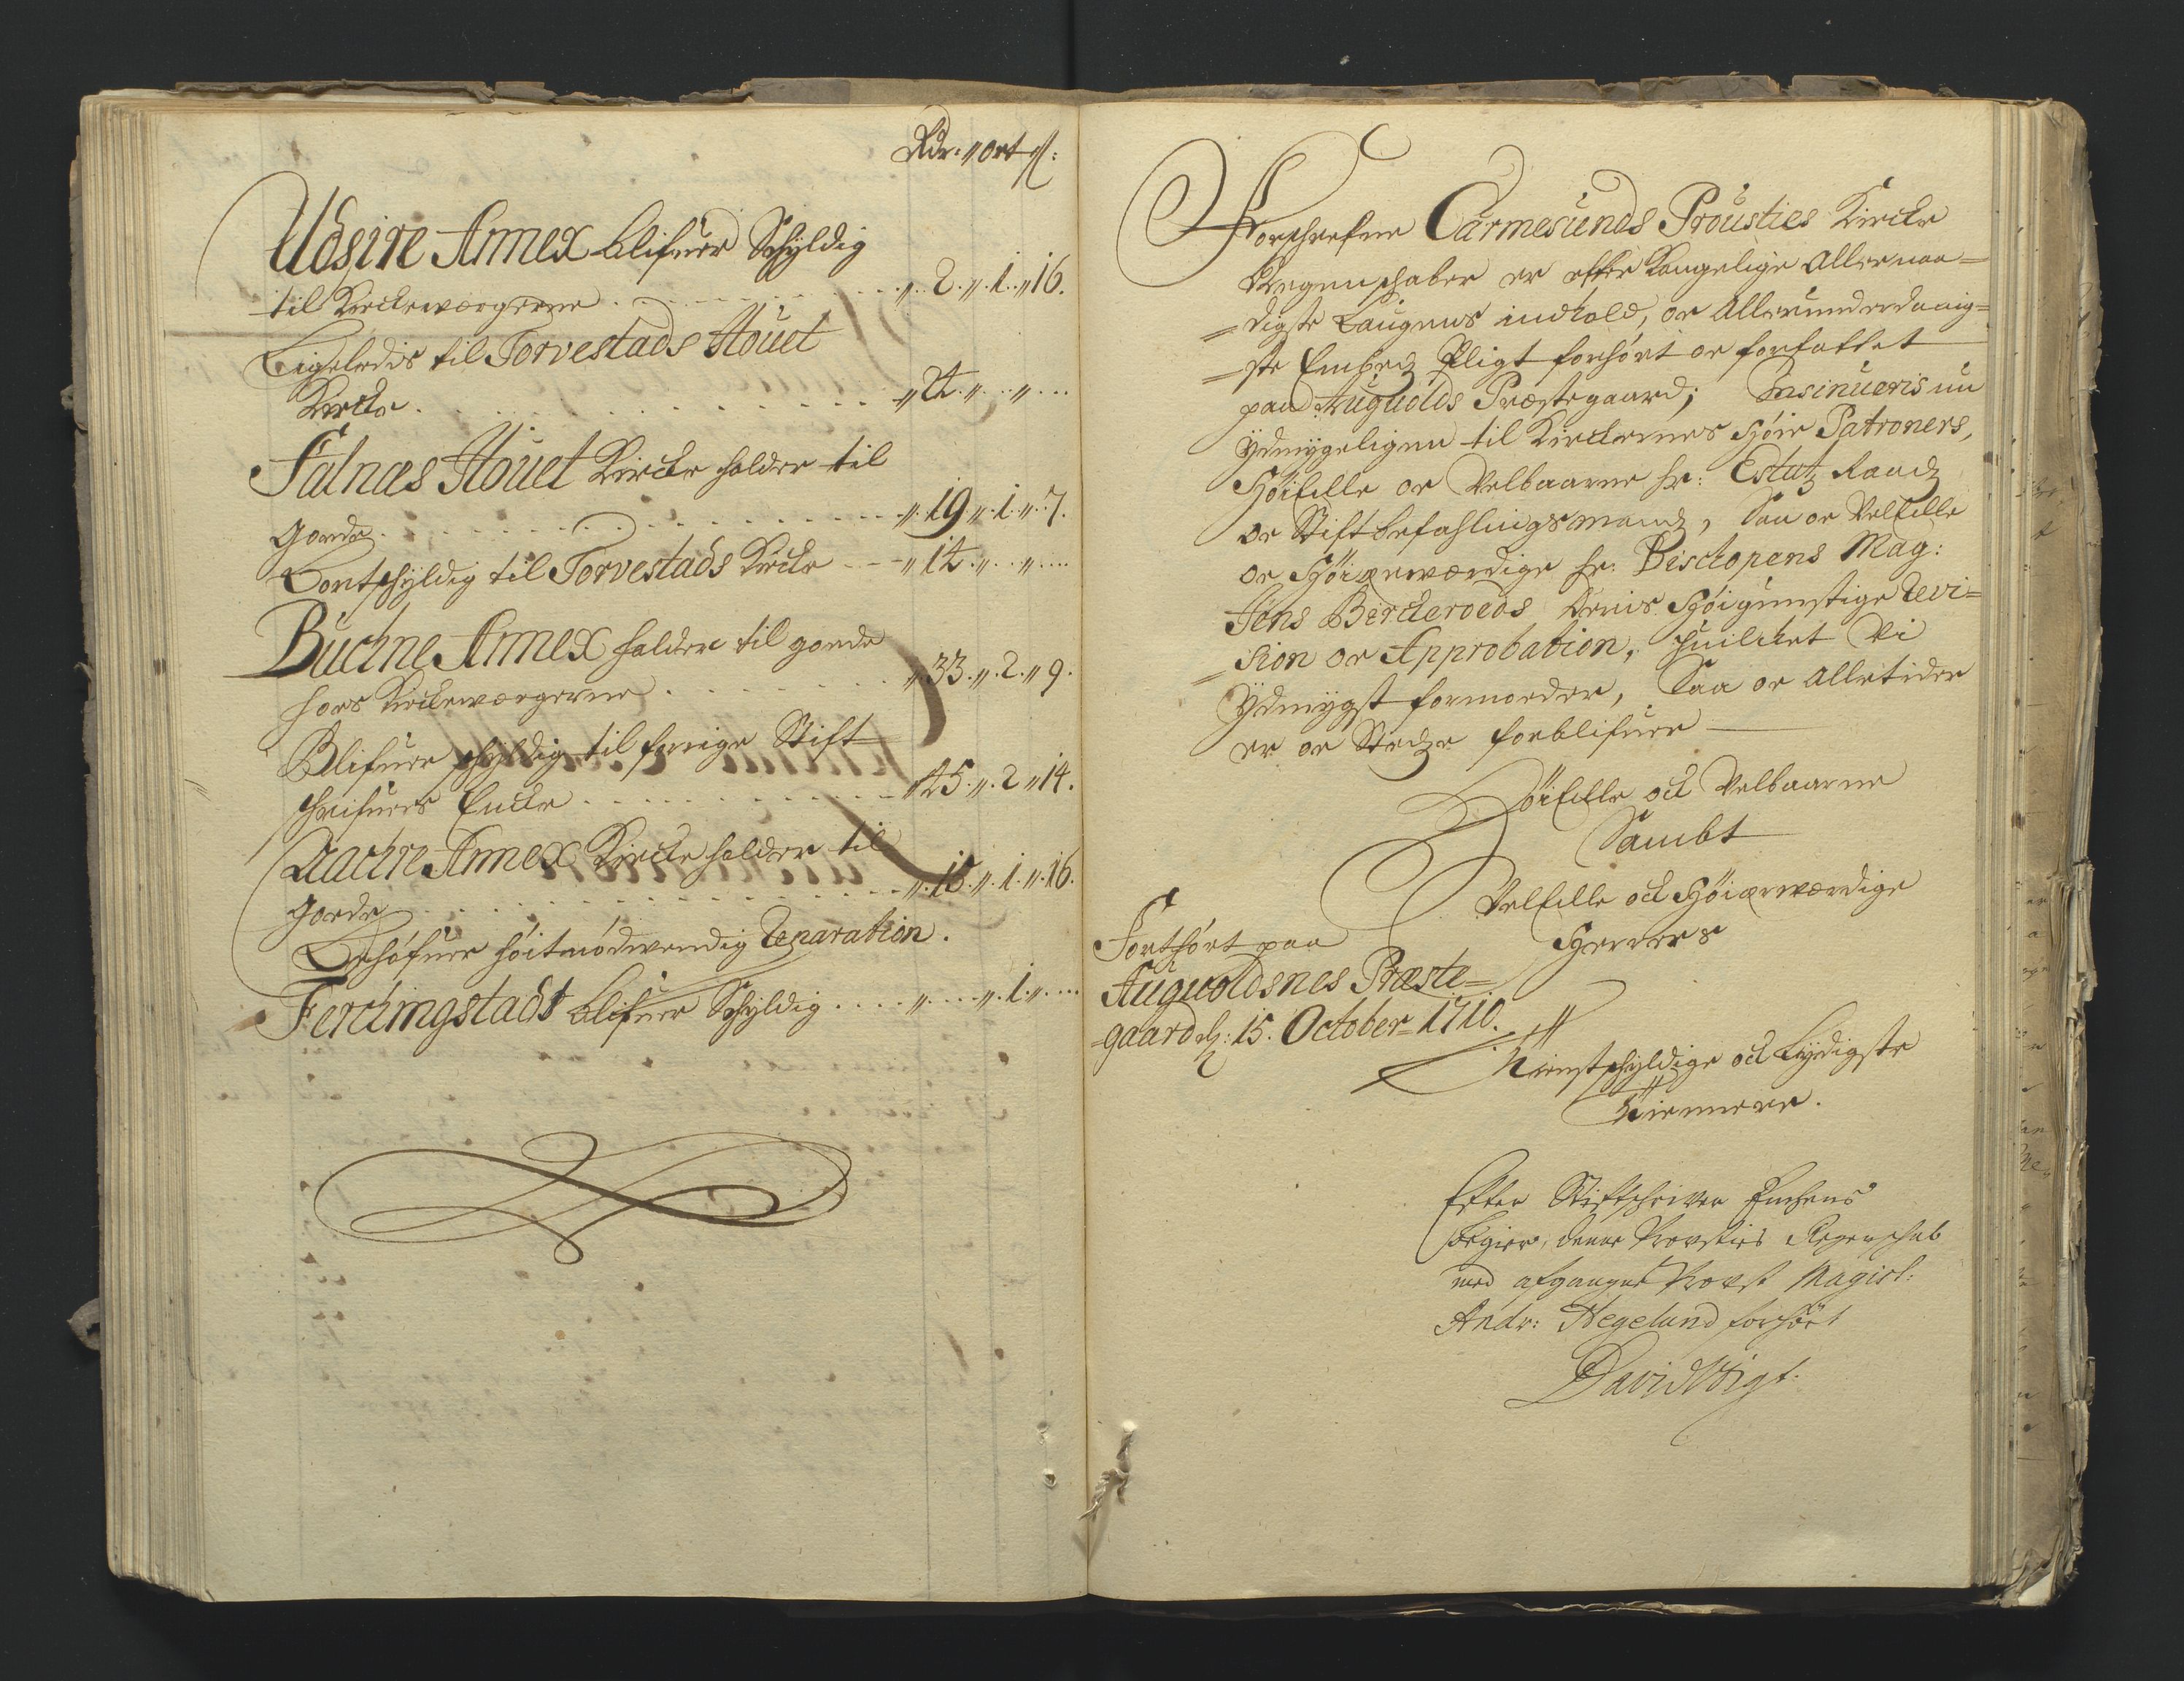 Rdr: ort ß:
Udsire Annex blifuer Schyldig
til Kirckeværgerne . . . 2. 1. 16.
Ligeledis til Torvestads Hovet
Kircke . . . 24. . .
Falnæs Hovet Kircke holder til
gode . . . 19. 1. 7.
Bortschyldig til Torvestads Kircke . . 14. . .
Buckne Annex holder til gode
hoes Kirckeværgerne . . . 33. 2. 9.
Blifuer schyldig til forige Stift
schrifuers Encke . . . 45. 2. 14.
Aachre Annex Kircke holder til
gode . . . 15. 1. 16.
Behøfuer høitnødwendig Reparation.
Ferckingstads blifuer Schyldig . . . . 1. . .
Forschrefne Carmesunds Prousties Kircke
Regenschaber er efter Kongelige Allernaa=
=digste Laugens indhold, oc Allerunderdanig=
=ste Embedz Pligt forhørt oc forfattet
paa Auguolds Præstegaard; Insinueris nu
Ydmygeligen til Kirckernes høie Patroners,
Høiædle oc Velbaarne hr: Estatz Raadz
oc Stiftbefahlingsmandz, Saa oc Velædle
oc Høiærwærdige hr: Bischopens Mag:
Jens Bircherods Deris Høigunstige Revi=
=sion oc Approbation, huilcket Vi
Ydmygst formoder, Saa oc Alletider
er oc Stedze forblifuer
Høiædle ock Velbaarne
Sambt
Velædle ock Høiærwærdige
Herrers
Forhørt paa
Auguoldsnes Præste=
=gaard d: 15. October 1710.
Tienstschyldige ock Lydigste
Tiennere.
Efter Stiftschriver Enchens
begier, denne Provsties Regenschab
med afgangne Provst Magist:
Andr: Hegelund forhört
David Vigt.